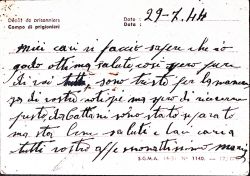 Dépôt de prisonniers
Campo di prigionieri
Date :
Data : 29-7.44
miei cari vi faccio sapere che io
godo ottima salute così spero pure
di voi tutti, sono triste per la mancanza
di vostre notizie ma spero di riceverne
presto
ma sto bene saluti e baci cari a
tutti vostro aff
S.G.M.A. N° 1140.